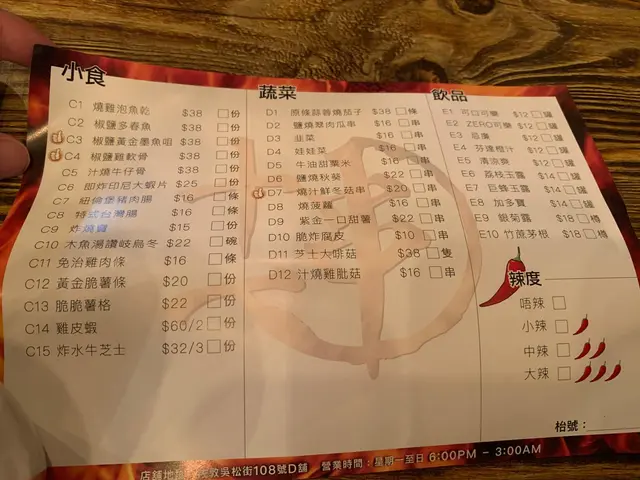 小食
C1 燒雞泡魚乾 $38 份
C2 椒鹽多春魚 $38 份
C3 椒鹽黃金墨魚咀 $38 份
C4 椒鹽雞軟骨 $38 份
C5 汁燒牛仔骨 $38 份
C6 即炸印尼大蝦片 $25 份
C7 紐倫堡豬肉腸 $16 條
C8 特式台灣腸 $16 條
C9 炸燒賣 $15 份
C10 木魚湯讚岐烏冬 $22 碗
C11 免治雞肉條 $16 條
C12 黃金脆薯條 $20 份
C13 脆脆薯格 $22 份
C14 雞皮蝦 $60/2 份
C15 炸水牛芝士 $32/3 份
蔬菜
D1 原條蒜蓉燒茄子 $38 條
D2 鹽燒翠肉瓜串 $16 串
D3 韭菜 $16 串
D4 娃娃菜 $16 串
D5 牛油甜粟米 $16 串
D6 鹽燒秋葵 $22 串
D7 燒汁鮮冬菇串 $20 串
D8 燒菠蘿 $16 串
D9 紫金一口甜薯 $22 串
D10 脆炸腐皮 $10 串
D11 芝士大啡菇 $38 隻
D12 汁燒雞肶菇 $16 串
飲品
E1 可口可樂 $12 罐
E2 ZERO可樂 $12 罐
E3 忌廉 $12 罐
E4 芬達橙汁 $12 罐
E5 清涼爽 $12 罐
E6 荔枝玉露 $14 罐
E7 巨蜂玉露 $14 罐
E8 加多寶 $14 罐
E9 銀菊露 $18 樽
E10 竹蔗茅根 $18 樽
辣度
唔辣
小辣
中辣
大辣
枱號：
店舖地址 敦吳松街108號D舖 營業時間：星期一至日 6:00PM – 3:00AM